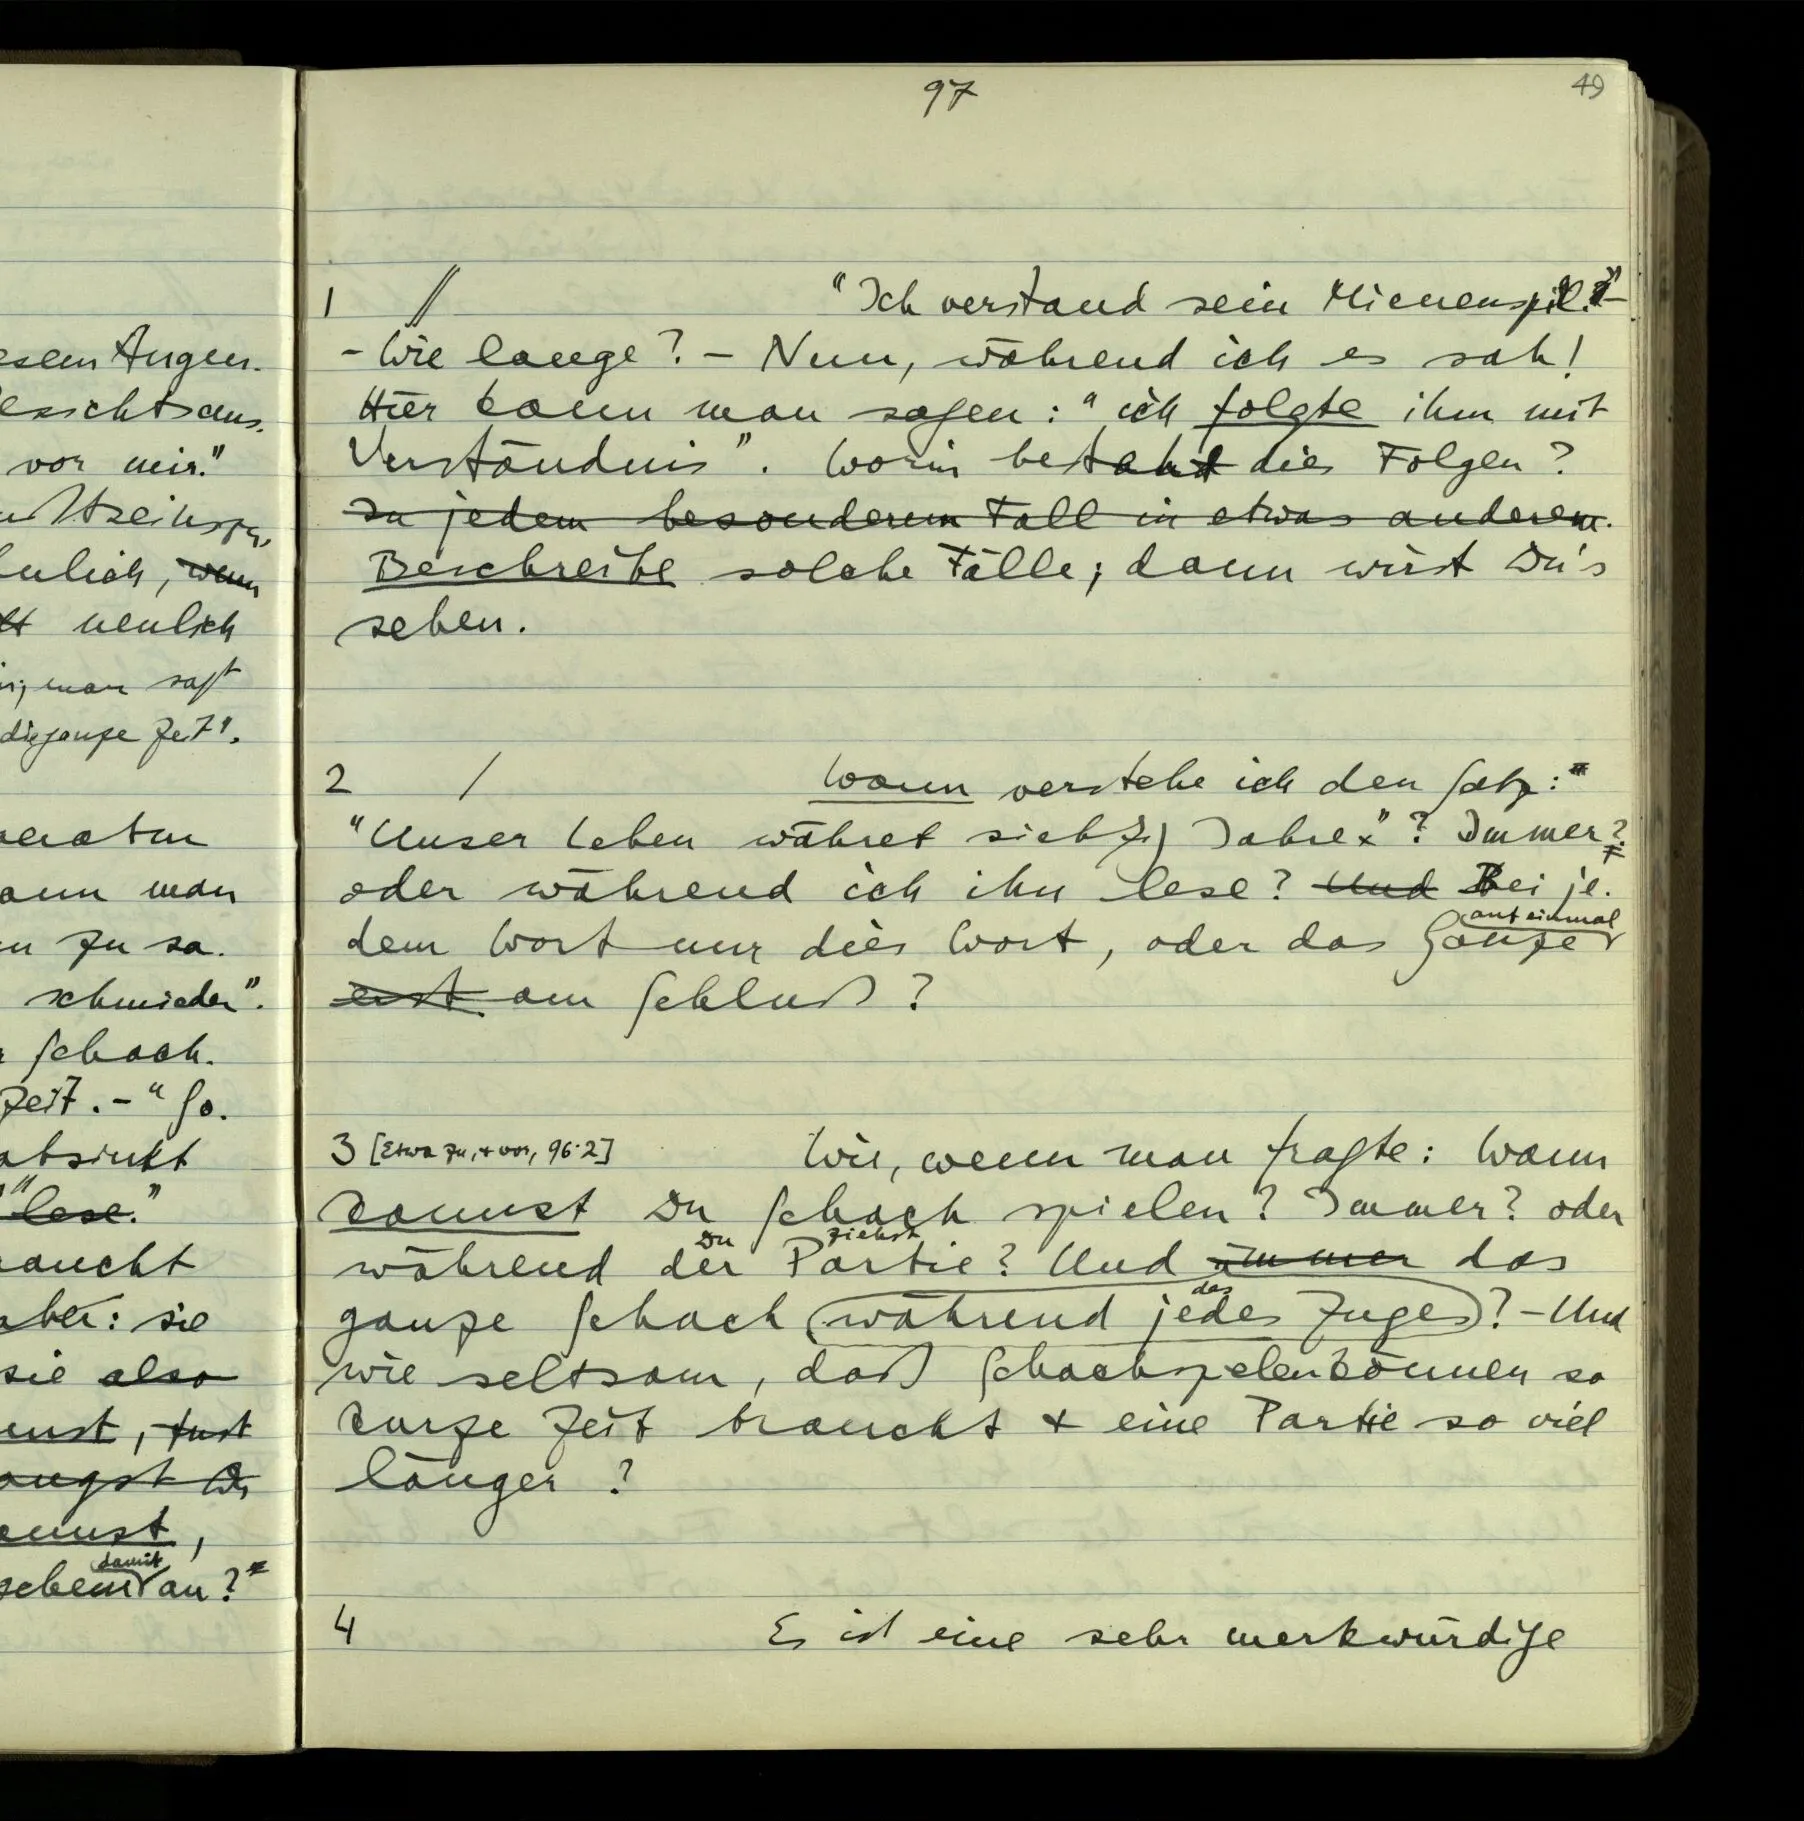 esem Augen-
esichtsaus-
vor mir."
nlich, wenn
neulich
man sagt
die ganze Zeit".
man
zu sa-
schmieden".
Schach-
Zeit. – "So-
absinkt
"lese."
braucht
aber: sie
sie also
damit
an?"
97
49
1 // "Ich verstand sein Mienenspiel."–
– Wie lange? – Nun, während ich es sah!
Hier kann man sagen: "ich folgte ihm mit
Verständnis". Worin bestand dies Folgen?
In jedem besonderem Fall in etwas anderem.
Beschreibe solche Fälle; dann wirst Du's
sehen.
2 / Wann verstehe ich den Satz:
"Unser Leben währet siebzig Jahre"? Immer?
oder während ich ihn lese? Und Bei je-
auf einmal
dem Wort nur dies Wort, oder das Ganze
erst am Schluß?
3 [Etwa zu, + vor, 96·2] Wie, wenn man fragte: Wann
kannst Du Schach spielen? Immer? oder
Du ziehst
während der Partie? Und immer das
des
ganze Schach während jedes Zuges? – Und
wie seltsam, daß Schachspielenkönnen so
kurze Zeit braucht + eine Partie so viel
länger?
4 Es ist eine sehr merkwürdige